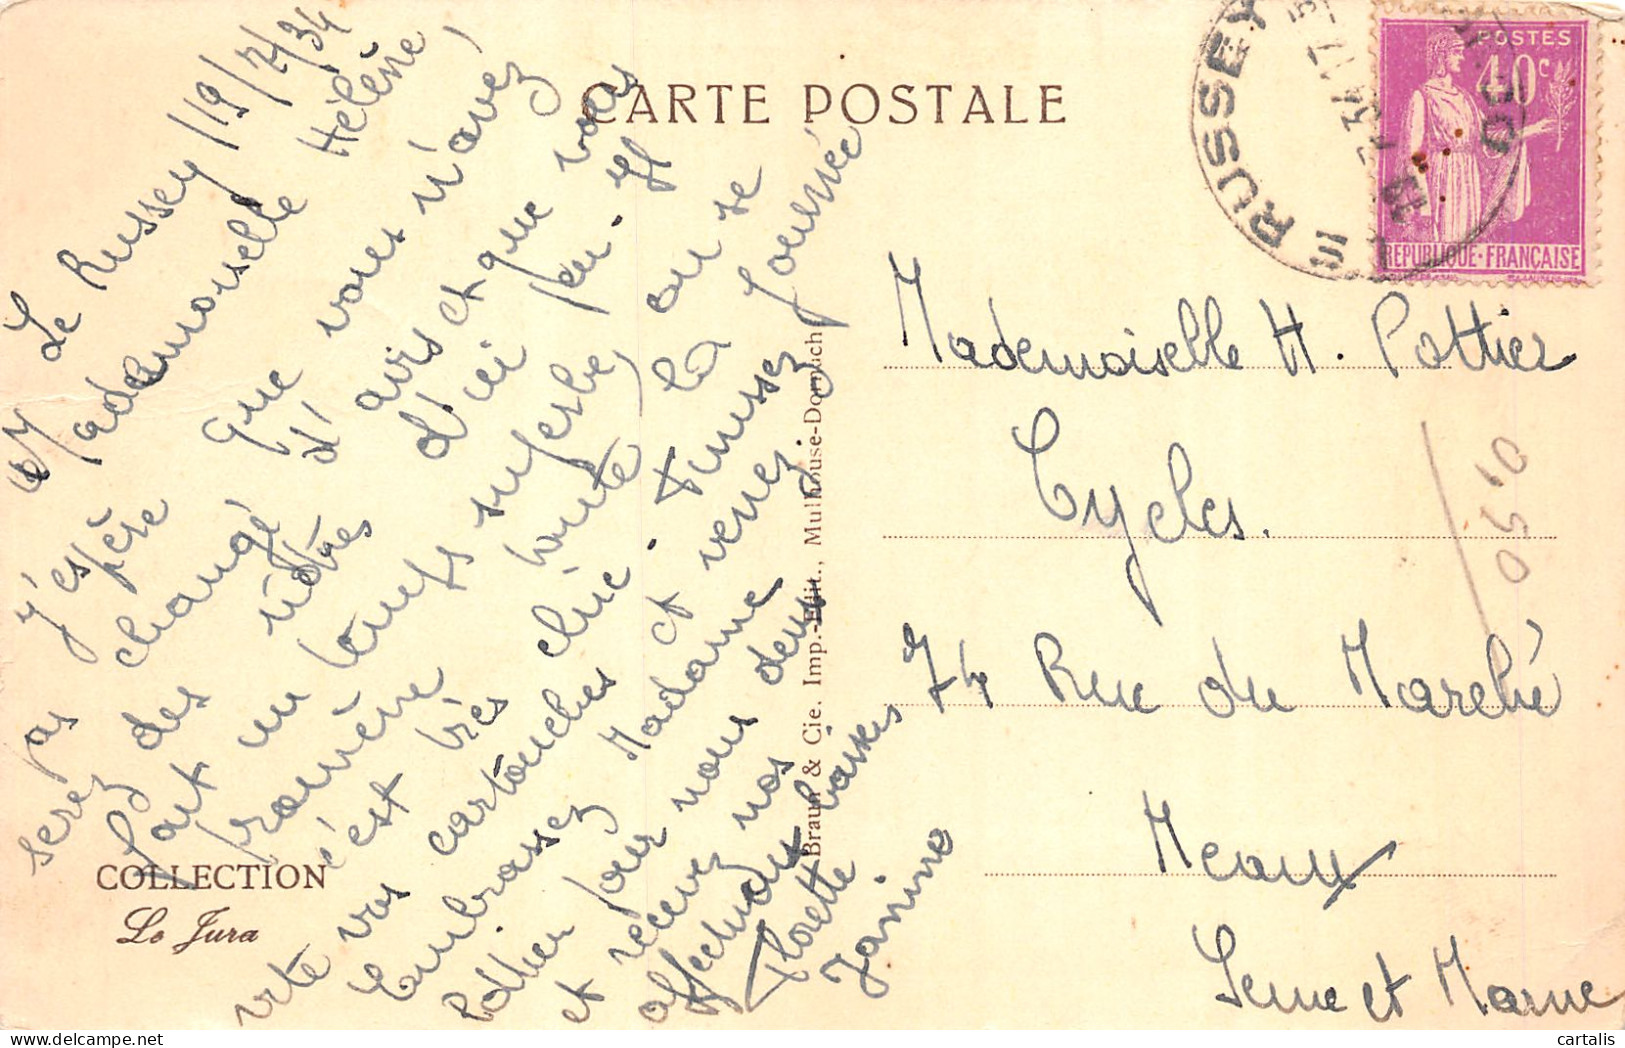 CARTE POSTALE
Le Russey 19/7/34
Mademoiselle Hélène
J'espère que vous n'avez
pas changé d'avis et que vous
serez des nôtres d'ici peu. Il
fait un temps superbe, on se
promène toute la journée
c'est très chic. Finissez
vite vos cartouches et venez
Embrassez Madame
Pottier pour nous deux
et recevez nos
affectueux baisers
Florette
Janine
COLLECTION
Le Jura
Braun & Cie. Imp.-Edit., Mulhouse-Dornach
LE RUSSEY
34
POSTES
40c
REPUBLIQUE·FRANÇAISE
Mademoiselle H. Pottier
Cycles.
74 Rue du Marché
Meaux
Seine et Marne
0,50
cartalis